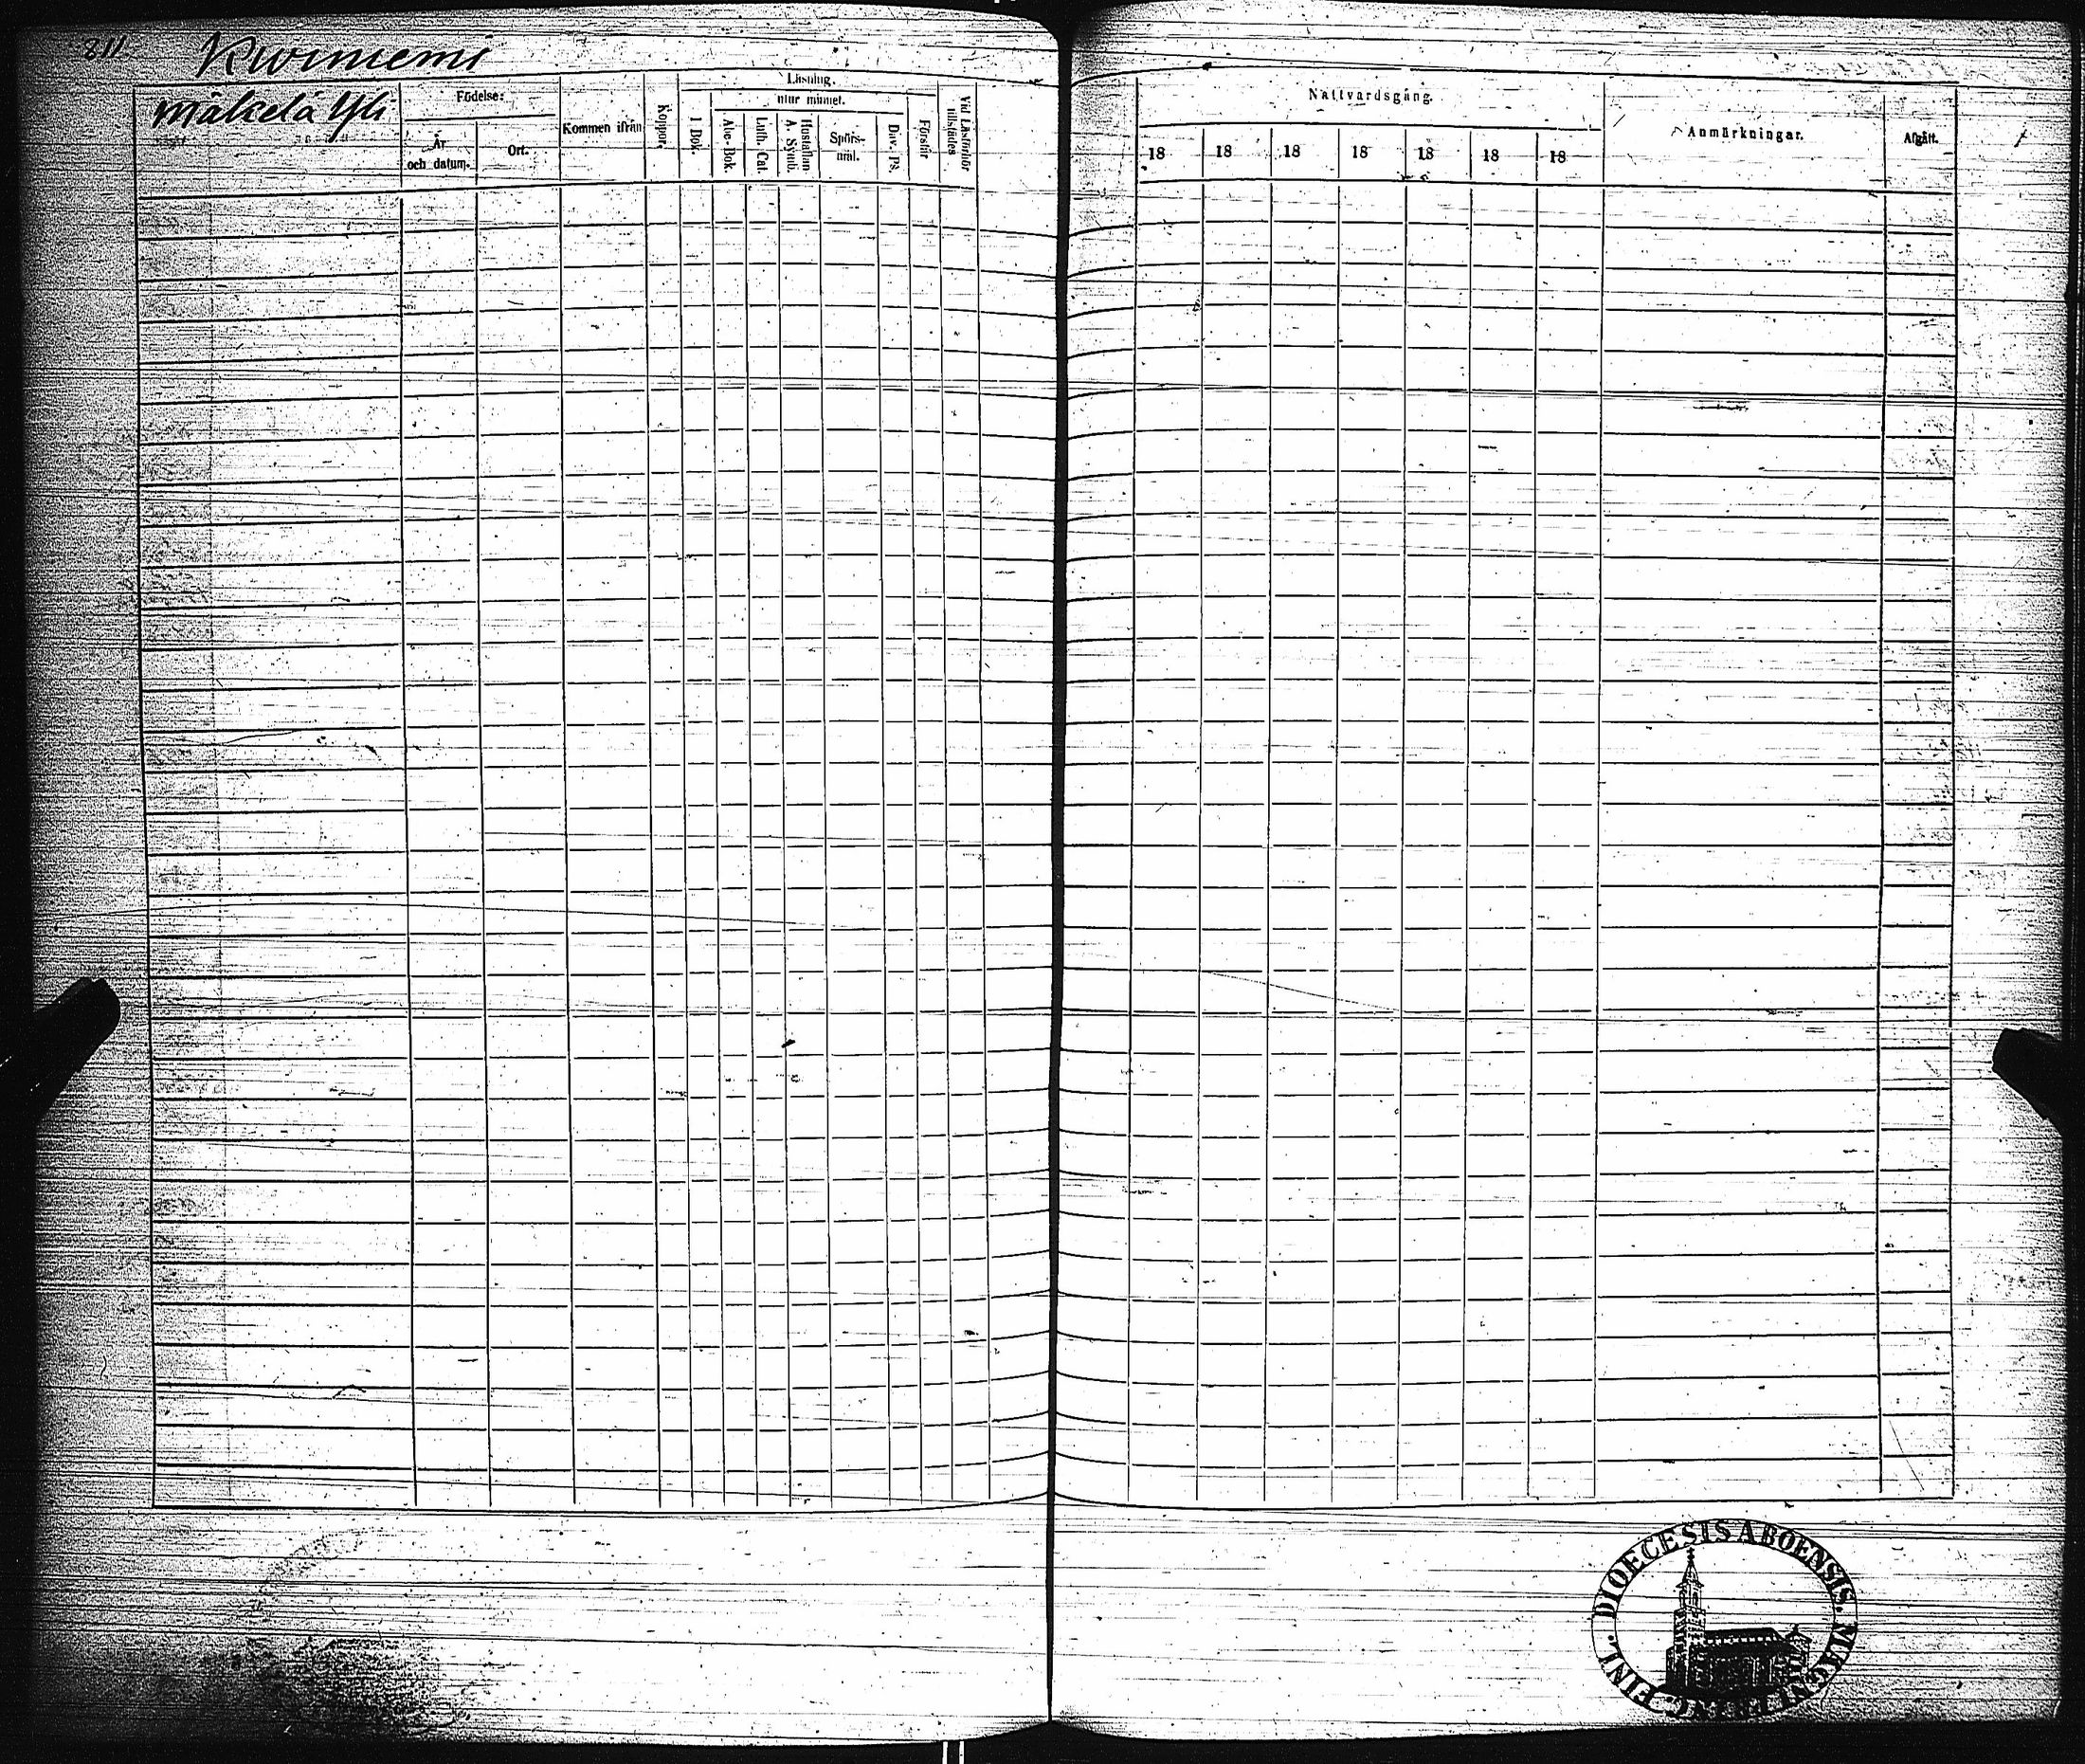 211
Kiviniemi
Mäkelä Yli
Födelse:
År
och datum.
Ort.
Kommen ifrån
Koppor.
Läsning
utur minnet.
I Bok.
Abc-Bok.
Luth. Cat.
Hustaflan
A. Symb.
Spörs-
mål.
Dav. Ps.
Förstår
Vid Läsförhör
tillstädes
Nattvardsgång.
18 18 18 18 18 18 18
Anmärkningar.
Afgått.
DIOECESIS ABOENSIS. MAGNI DUC. FINL.